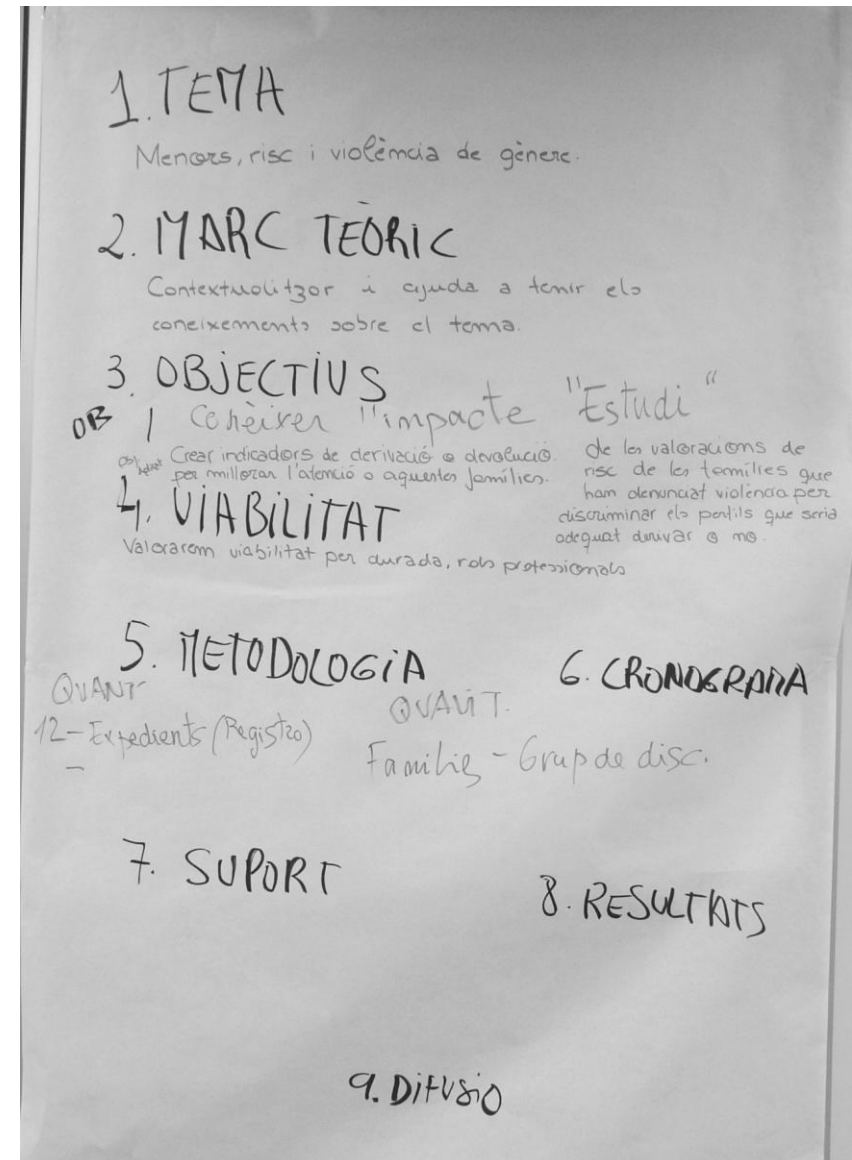 1. TEMA
Menors, risc i violència de gènere.
2. MARC TEÒRIC
Contextualitzar i ajuda a tenir els
coneixements sobre el tema.
3. OBJECTIUS
OB 1 Conèixer l'impacte "Estudi"
Crear indicadors de derivació o devolució.
per millorar l'atenció a aquestes famílies.
de les valoracions de
risc de les famílies que
han denunciat violència per
discriminar els perfils que seria
adequat derivar o no.
4. VIABILITAT
Valorarem viabilitat per durada, rols professionals
5. METODOLOGIA
QUANT
12 - Expedients (Registro)
-
QUALIT.
Families - Grup de disc.
6. CRONOGRAMA
7. SUPORT
8. RESULTATS
9. DIFUSIO